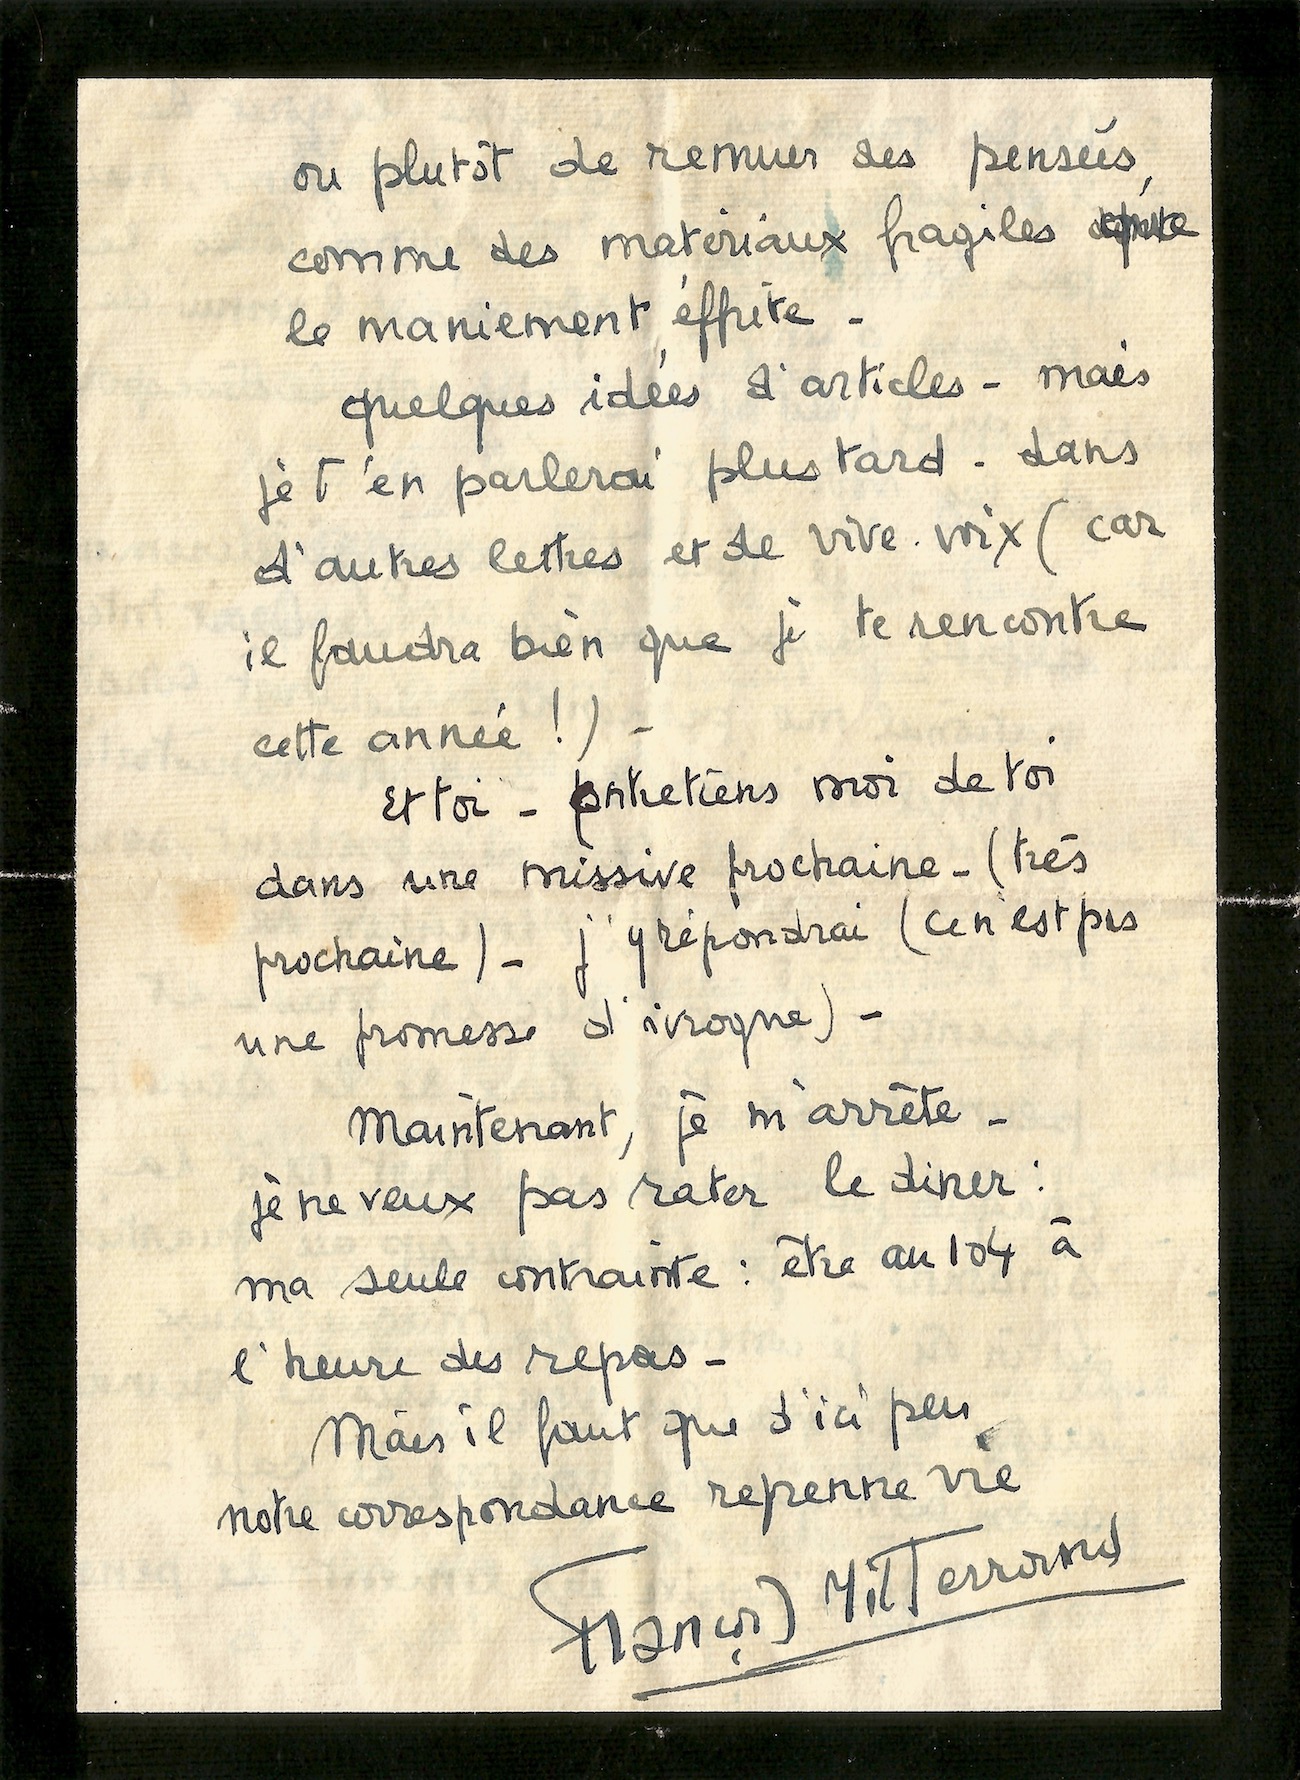 ou plutôt de remuer des pensées,
comme des matériaux fragiles que
le maniement éffrite -
quelques idées d'articles - mais
je t'en parlerai plus tard - dans
d'autres lettres et de vive-voix (car
il faudra bien que je te rencontre
cette année !) -
Et toi - Entretiens moi de toi
dans une missive prochaine - (très
prochaine) - j'y répondrai (ce n'est pas
une promesse d'ivrogne) -
Maintenant, je m'arrête -
je ne veux pas rater le diner :
ma seule contrainte : être au 104 à
l'heure des repas -
Mais il faut que d'ici peu
notre correspondance reprenne vie
François Mitterrand